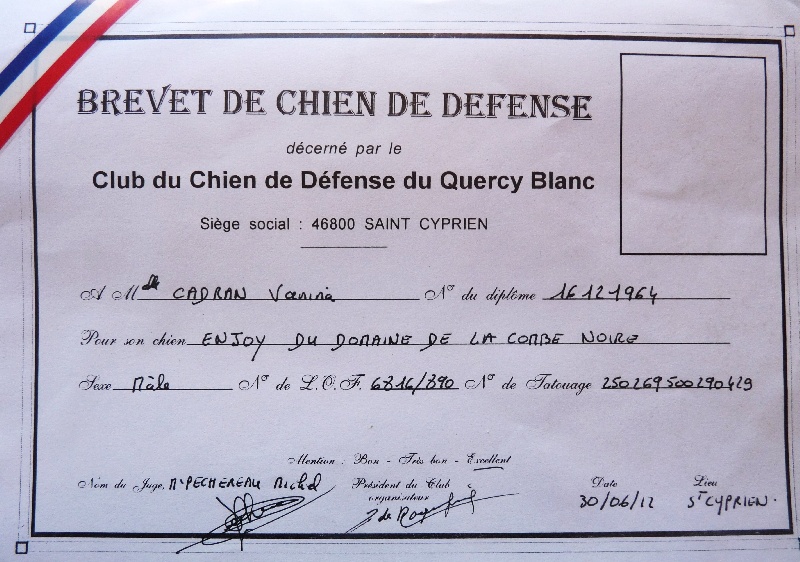 BREVET DE CHIEN DE DEFENSE
décerné par le
Club du Chien de Défense du Quercy Blanc
Siège social : 46800 SAINT CYPRIEN
A Mde CADRAN Vanina N° du diplôme 16121964
Pour son chien ENJOY DU DOMAINE DE LA COMBE NOIRE
Sexe Mâle N° de L.O.F. 6816/890 N° de Tatouage 250269500290429
Mention : Bon - Très bon - Excellent
Nom du Juge, Mr PECHEREAU Michel Président du Club Date Lieu
organisateur 30/06/12 ST CYPRIEN.